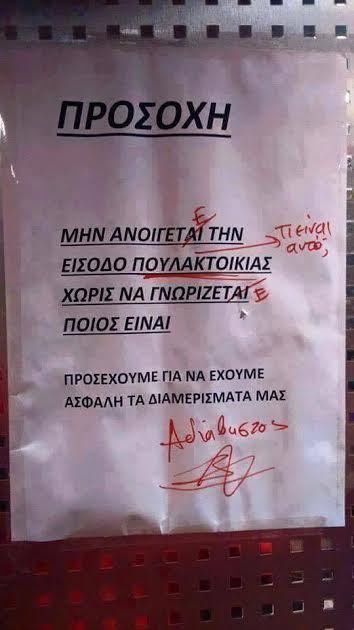 ΠΡΟΣΟΧΗ
Ε
ΜΗΝ ΑΝΟΙΓΕΤΑΙ ΤΗΝ
Τι είναι
αυτό;
ΕΙΣΟΔΟ ΠΟΥΛΑΚΤΟΙΚΙΑΣ
ΧΩΡΙΣ ΝΑ ΓΝΩΡΙΖΕΤΑΙ Ε
ΠΟΙΟΣ ΕΙΝΑΙ
ΠΡΟΣΕΧΟΥΜΕ ΓΙΑ ΝΑ ΕΧΟΥΜΕ
ΑΣΦΑΛΗ ΤΑ ΔΙΑΜΕΡΙΣΜΑΤΑ ΜΑΣ
Αδιάβαστος